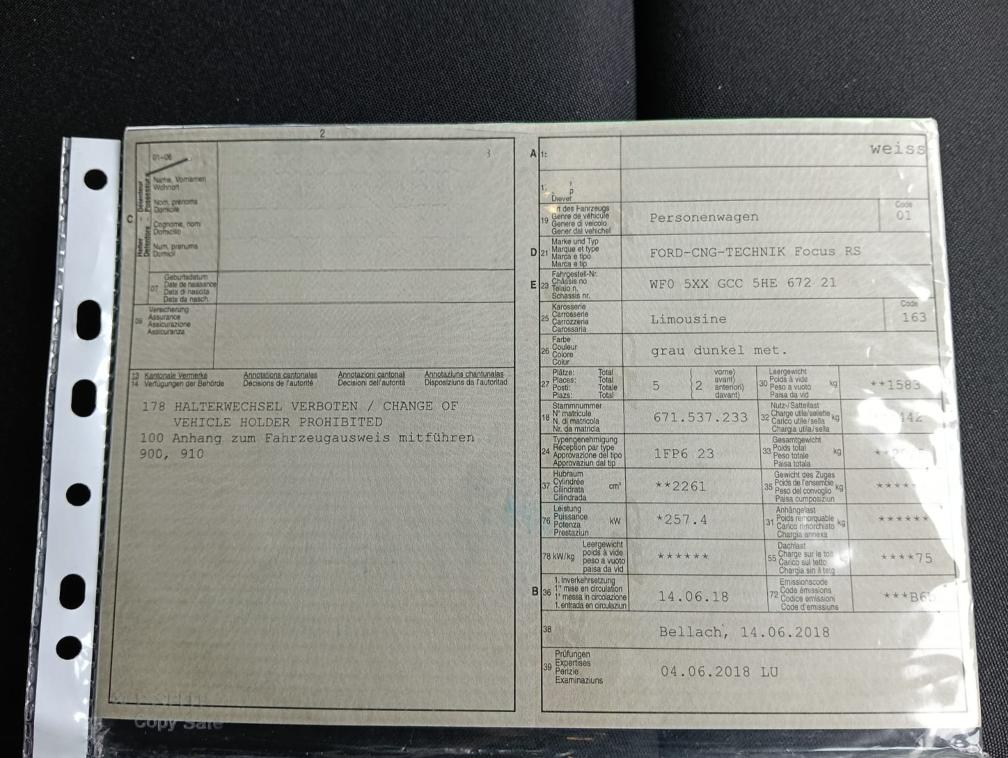 2
01-06
Name, Vornamen
Wohnort
Nom, prénoms
Domicile
Cognome, nom
Domicilio
Num, prenums
Domicil
C
Halter Détenteur
Detentore Possessur
07
Geburtsdatum
Date de naissance
Data di nascita
Data da nasch.
09
Versicherung
Assurance
Assicurazione
Assicuranza
13 Kantonale Vermerke Annotations cantonales Annotazioni cantonali Annotaziuns chantunalas
14 Verfügungen der Behörde Décisions de l'autorité Decisioni dell'autorità Disposiziuns da l'autoritad
178 HALTERWECHSEL VERBOTEN / CHANGE OF
VEHICLE HOLDER PROHIBITED
100 Anhang zum Fahrzeugausweis mitführen
900, 910
Copy Safe
A
weiss
19
Art des Fahrzeugs
Genre de véhicule
Genere di veicolo
Gener dal vehichel
Personenwagen
Code
01
D 21
Marke und Typ
Marque et type
Marca e tipo
Marca e tip
FORD-CNG-TECHNIK Focus RS
E 23
Fahrgestell-Nr.
Châssis no
Telaio n.
Schassis nr.
WF0 5XX GCC 5HE 672 21
25
Karosserie
Carrosserie
Carrozzeria
Carossaria
Limousine
Code
163
26
Farbe
Couleur
Colore
Colur
grau dunkel met.
27
Plätze: Total
Places: Total
Posti: Totale
Plazs: Total
5
2
vorne)
avant)
anteriori)
davant)
30
Leergewicht
Poids à vide
Peso a vuoto
Paisa da vid
kg
**1583
18
Stammnummer
N° matricule
N. di matricola
Nr. da matricla
671.537.233
32
Nutz-/Sattellast
Charge utile/sellette
Carico utile/sella
Chargia utila/sella
kg
24
Typengenehmigung
Réception par type
Approvazione del tipo
Approvaziun dal tip
1FP6 23
33
Gesamtgewicht
Poids total
Peso totale
Paisa totala
kg
37
Hubraum
Cylindrée
Cilindrata
Cilindrada
cm³
**2261
35
Gewicht des Zuges
Poids de l'ensemble
Peso del convoglio
Paisa cumposiziun
kg
*****
76
Leistung
Puissance
Potenza
Prestaziun
kW
*257.4
31
Anhängelast
Poids remorquable
Carico rimorchiato
Chargia annexa
kg
******
78 kW/kg
Leergewicht
poids à vide
peso a vuoto
paisa da vid
******
55
Dachlast
Charge sur le toit
Carico sul tetto
Chargia sin il tetg
****75
B 36
1. Inverkehrsetzung
1re mise en circulation
1a messa in circolazione
1. entrada en circulaziun
14.06.18
72
Emissionscode
Code émissions
Codice emissioni
Code d'emissiuns
38
Bellach, 14.06.2018
39
Prüfungen
Expertises
Perizie
Examinaziuns
04.06.2018 LU